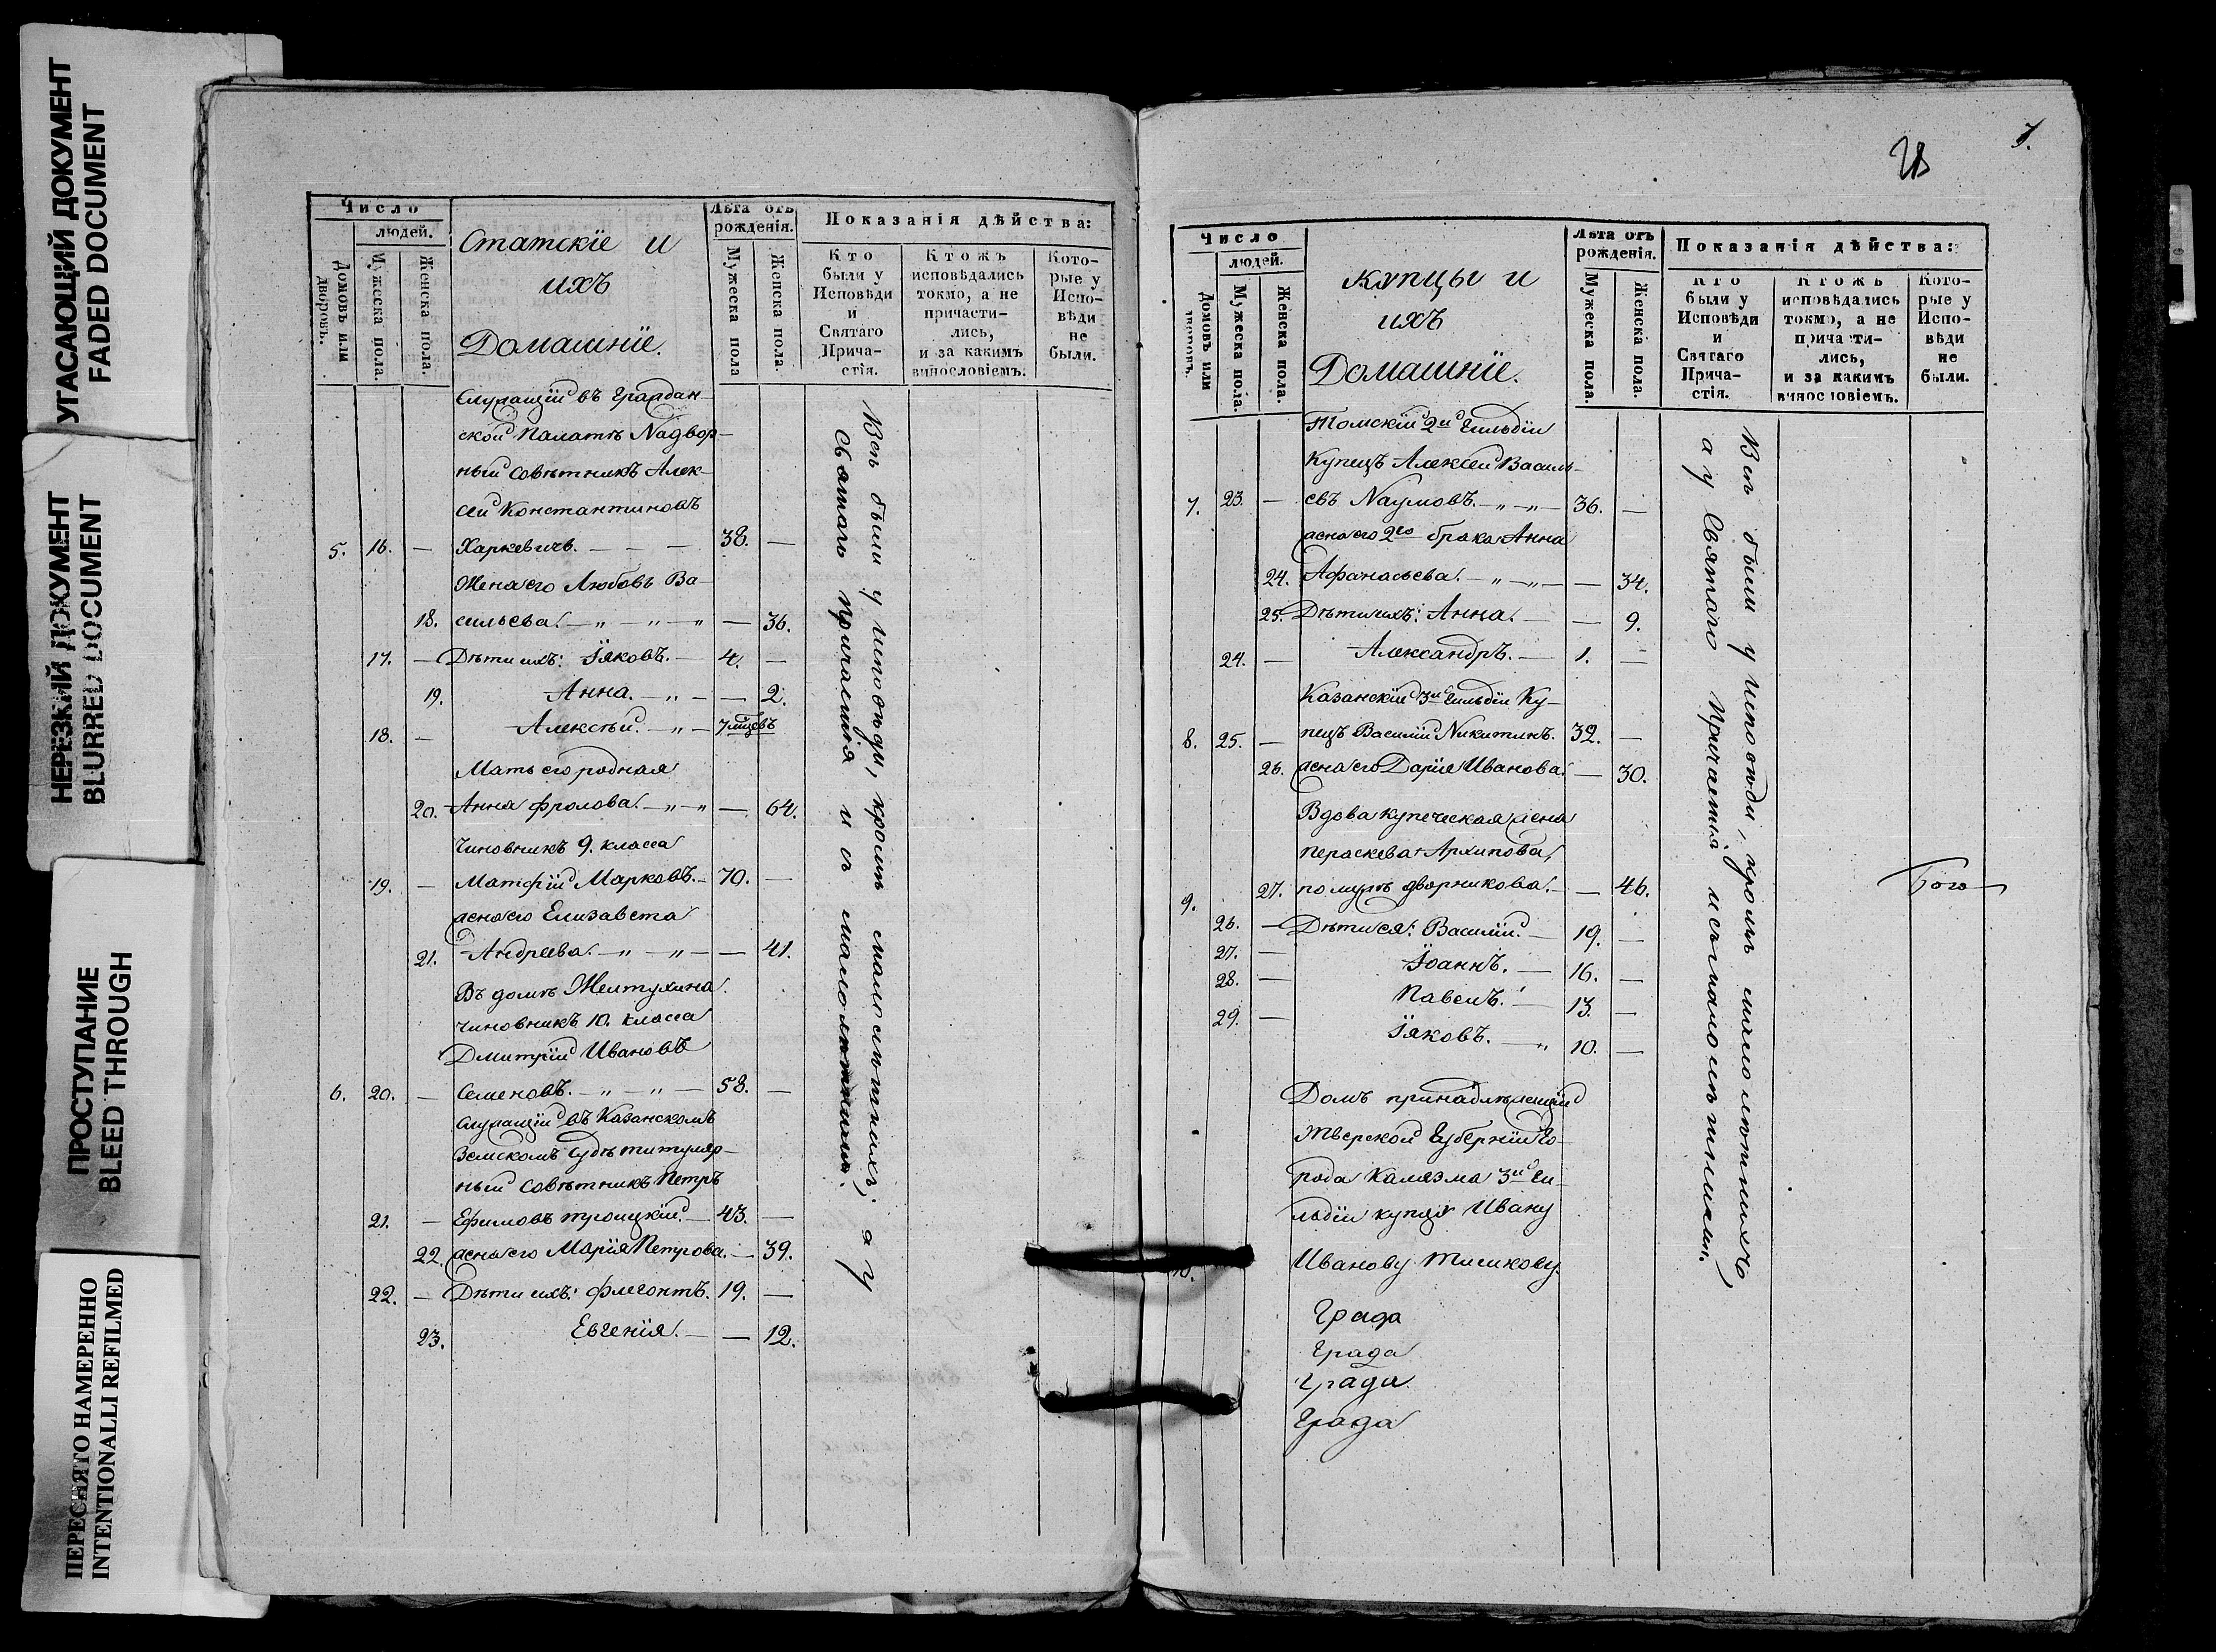 УГАСАЮЩИЙ ДОКУМЕНТ
FADED DOCUMENT
НЕРЕЗКИЙ ДОКУМЕНТ
BLURRED DOCUMENT
ПРОСТУПАНИЕ
BLEED THROUGH
ПЕРЕСНЯТО НАМЕРЕННО
INTENTIONALLI REFILMED
Число
людей.
Домовъ или дворовъ.
Мужеска пола.
Женска пола.
Статскіе и
ихъ
Домашніе.
Лѣта отъ
рожденія.
Мужеска пола
Женска пола.
Показанія дѣйства:
Кто
были у
Исповѣди
и
Святаго
Прича-
стія.
Ктожъ
исповѣдались
токмо, а не
причасти-
лись,
и за какимъ
винословіемъ.
Кото-
рые у
Испо-
вѣди
не
были.
Служащій въ Граждан-
ской Палатѣ Надвор-
ный Совѣтникъ Алек-
сей Константиновъ
5. 16. — Харкевичь. — — — 38. —
Жена его Любовь Ва-
18. сильева. — „ — „ — „ — 36.
17. — Дѣти ихъ: Іяковъ. — 4. —
19. Анна. — „ — — 2.
18. — Алексѣй. — „ — 7 мцсвъ
Мать его родная
20. Анна Фролова. — „ — „ — 64.
Чиновникъ 9. класса
19. — Матфій Марковъ. — 70. —
жена его Елизавета
21. Андреева. — „ — „ — — 41.
Въ домѣ Желтухина.
Чиновникъ 10. класса
Дмитрій Ивановъ
6. 20. — Семеновъ. — „ — „ — 58. —
Служащій въ Казанскомъ
Земскомъ Судѣ титуляр-
ный Совѣтникъ Петръ
21. — Ефимовъ Троицкій. — 43. —
22. жена его Марія Петрова. — 39.
22. — Дѣти ихъ: Флегонтъ. 19. —
23. Евгенія. — — 12.
Всѣ были у исповѣди, кромѣ малолѣтнихъ; а у
Святаго причастія и съ малолѣтними.
28
7.
Число
людей.
Домовъ или дворовъ.
Мужеска пола.
Женска пола.
Купцы и
ихъ
Домашніе.
Лѣта отъ
рожденія.
Мужеска пола.
Женска пола.
Показанія дѣйства:
Кто
были у
Исповѣди
и
Святаго
Прича-
стія.
Ктожъ
исповѣдались
токмо, а не
причасти-
лись,
и за какимъ
винословіемъ.
Кото-
рые у
Испо-
вѣди
не
были.
Томскій 2й Гильдіи
Купецъ Алексей Василь-
7. 23. — евъ Наумовъ. — „ — „ — 36. —
жена его 2го брака Анна
24. Афанасьева. — „ — „ — — 34.
25. Дѣти ихъ: Анна. — — 9.
24. — Александръ. — 1. —
Казанскіе 3й Гильдіи Ку-
8. 25. — пецъ Василій Никитинъ. 32. —
26. жена его Дарія Иванова. — 30.
Вдова купеческая жена
Пераскева Архипова,
9. 27. по мужѣ Дворникова. — — 46.
26. — Дѣти ея: Василій. — 19. —
27. — Іоаннъ. — 16. —
28. — Павелъ. — 13. —
29. — Іяковъ. — „ 10. —
Домъ принадлѣжащій
Тверской Губерніи Го-
рода Калязма 3й Ги-
льдіи купцу Ивану
10. Иванову Тишкову.
Града
Града
Града
Града
Всѣ были у исповѣди, кромѣ малолѣтнихъ,
а у Святаго Причастія и съ малолѣтними.